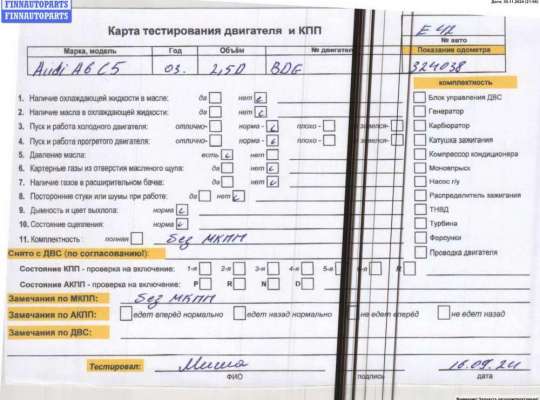 FINNAUTOPARTS
FINNAUTOPARTS
Карта тестирования двигателя и КПП
E 42
№ авто
Марка, модель Год Объём № двигател Показание одометра
Audi A6 C5 03. 2,5D BDG 324038
1. Наличие охлаждающей жидкости в масле: да нет
2. Наличие масла в охлаждающей жидкости: да нет
3. Пуск и работа холодного двигателя: отлично- норма - плохо -
4. Пуск и работа прогретого двигателя: отлично- норма - плохо -
5. Давление масла: есть нет
6. Картерные газы из отверстия масляного щупа: да нет
7. Наличие газов в расширительном бачке: да нет
8. Посторонние стуки или шумы при работе: да нет
9. Дымность и цвет выхлопа: норма
10. Состояние сцепления: норма
11. Комплектность : полная без МКПП
комплектность
Блок управления ДВС
Генератор
Карбюратор
Катушка зажигания
Компрессор кондиционера
Моновпрыск
Насос г/у
Распределитель зажигания
ТНВД
Турбина
Форсунки
Проводка двигателя
Снято с ДВС (по согласованию!):
Состояние КПП - проверка на включение: 1-я 2-я 3-я 4-я R
Состояние АКПП - проверка на включение: P R N D
Замечания по МКПП: без МКПП
Замечания по АКПП: едет вперёд нормально едет назад нормально не едет вперёд не едет назад
Замечания по ДВС:
Тестировал: Миша 16.09.24
ФИО подпись дата